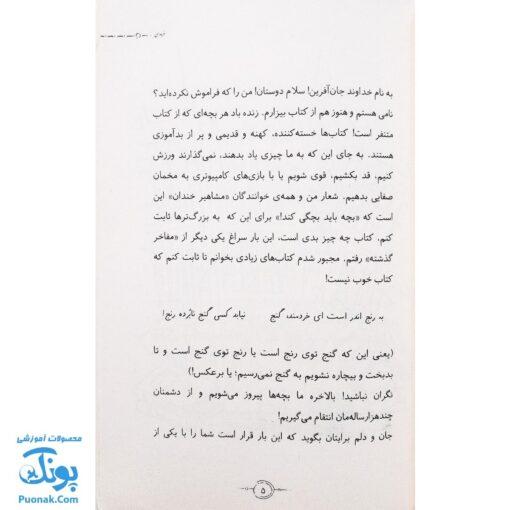 به نام خداوند جان‌آفرین! سلام دوستان! من را که فراموش نکرده‌اید؟
نامی هستم و هنوز هم از کتاب بیزارم. زنده باد هر بچه‌ای که از کتاب
متنفر است! کتاب‌ها خسته‌کننده، کهنه و قدیمی و پر از بدآموزی
هستند. به جای این که به ما چیزی یاد بدهند، نمی‌گذارند ورزش
کنیم، قد بکشیم، قوی شویم یا با بازی‌های کامپیوتری به مخمان
صفایی بدهیم. شعار من و همه‌ی خوانندگان «مشاهیر خندان» این
است که «بچه باید بچگی کند!» برای این که به بزرگ‌ترها ثابت
کنم، کتاب چه چیز بدی است، این بار سراغ یکی دیگر از «مفاخر
گذشته» رفتم. مجبور شدم کتاب‌های زیادی بخوانم تا ثابت کنم که
کتاب خوب نیست!
به رنج اندر است ای خردمند، گنج نیابد کسی گنج نابرده رنج!
(یعنی این که گنج توی رنج است یا رنج توی گنج است و تا
بدبخت و بیچاره نشویم به گنج نمی‌رسیم؛ یا برعکس!)
نگران نباشید! بالاخره ما بچه‌ها پیروز می‌شویم و از دشمنان
چندهزارساله‌مان انتقام می‌گیریم!
جان و دلم برایتان بگوید که این بار قرار است شما را با یکی از
۵
محصولات آموزشی
پونک
Puonak.Com